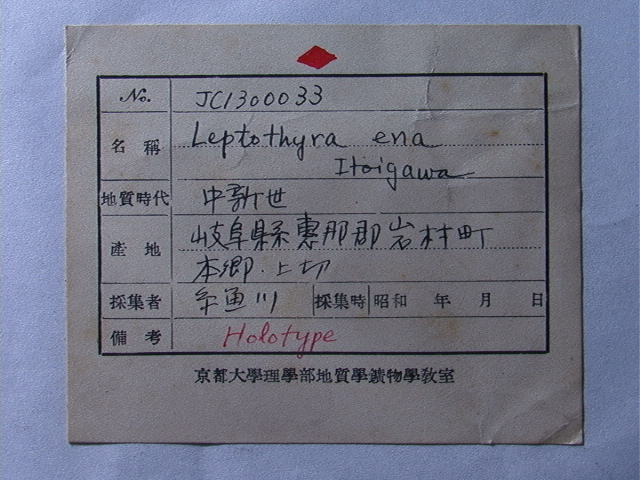 No. JC1300033
名稱 Leptothyra ena
Itoigawa
地質時代 中新世
產地 岐阜縣惠那郡岩村町
本郷・上切
採集者 糸魚川 採集時 昭和 年 月 日
備考 Holotype
京都大學理學部地質學鑛物學敎室